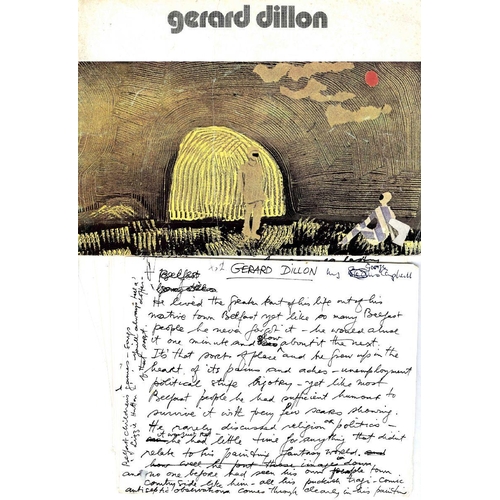 gerard dillon
GERARD DILLON by George Campbell
He lived the greater part of his life out of his
native town Belfast yet like so many Belfast
people he never forgot it - he would abuse
it one minute and about it the next.
It's that sort of place and he grew up in the
heart of its pains and aches - unemployment
political strife bigotry - yet like most
Belfast people he had sufficient humour to
survive it with very few scars showing.
He rarely discussed religion or politics -
he had little time for anything that didn't
relate to his painting fantasy world.
and no one before had seen his own town
countryside like him - all his puckish tragi-comic
antiseptic observations comes through clearly in his paintings
Belfast children's games - songs